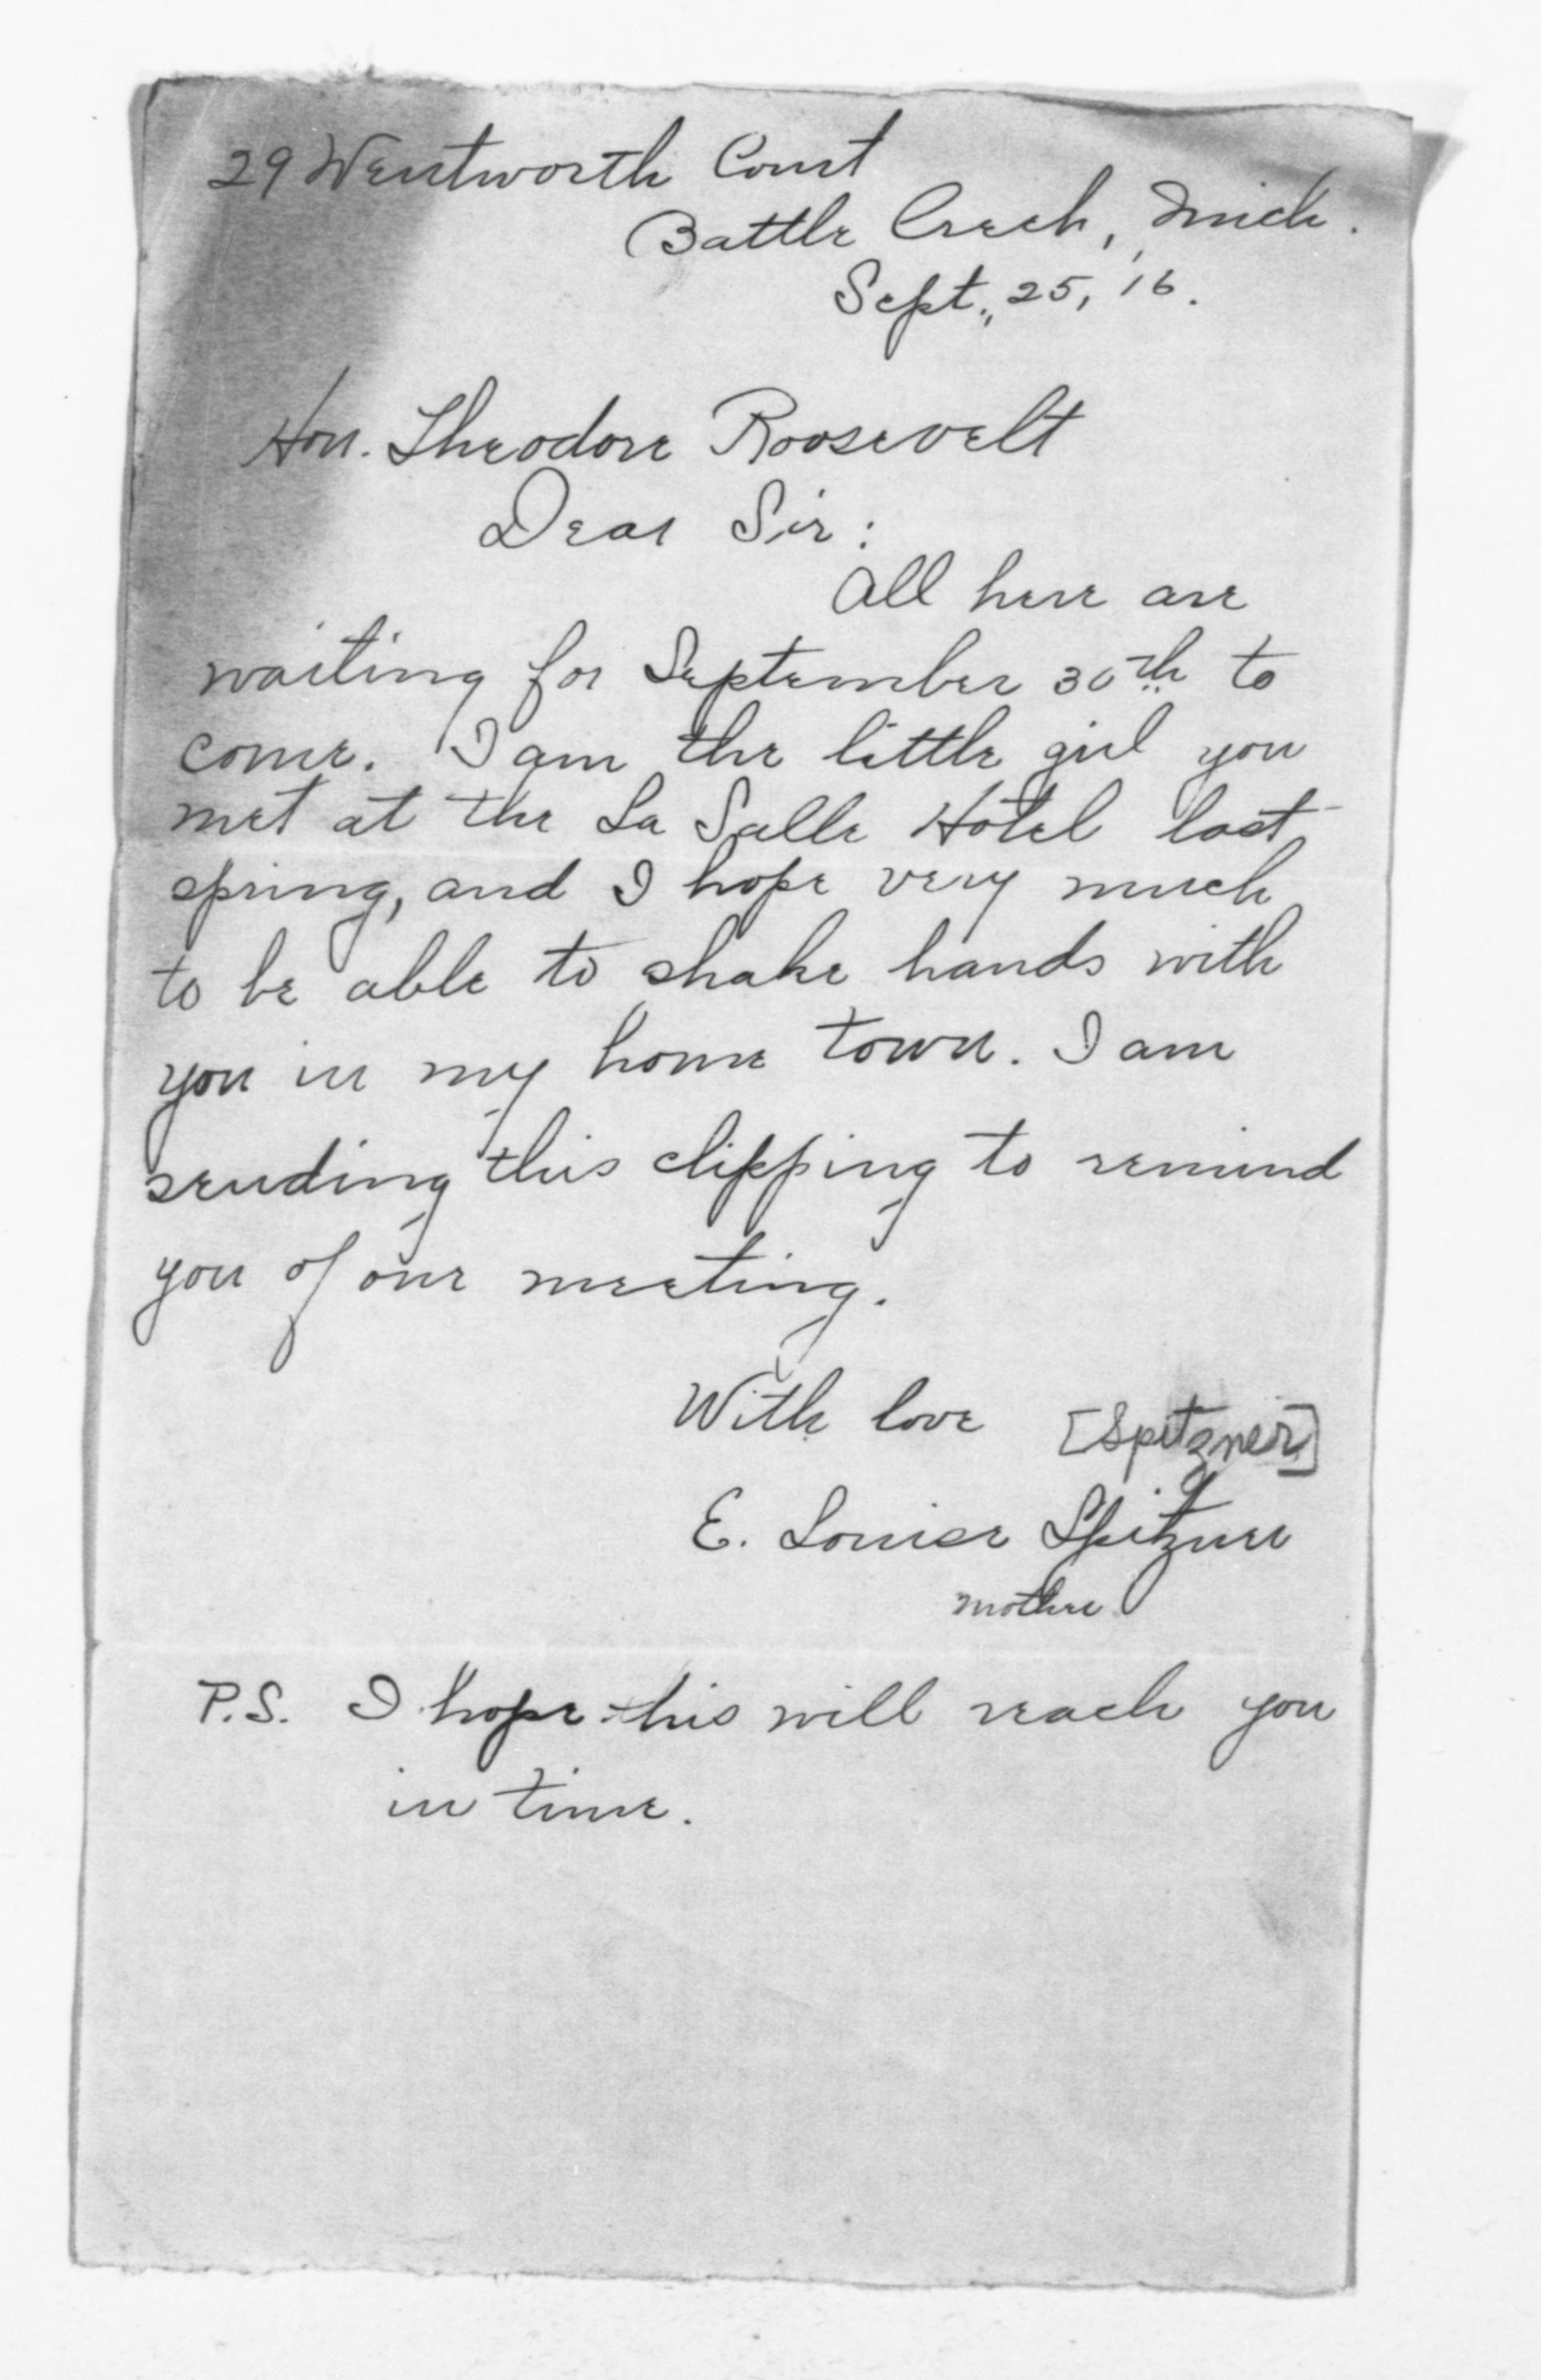 29 Wentworth Court
Battle Creek, Mich.
Sept., 25, '16.
Hon. Theodore Roosevelt
Dear Sir:
All here are
waiting for September 30th to
come. I am the little girl you
met at the La Salle Hotel last
spring, and I hope very much
to be able to shake hands with
you in my home town. I am
sending this clipping to remind
you of our meeting.
With love [Spitzner]
E. Louise Spitzner
mother
P.S. I hope this will reach you
in time.